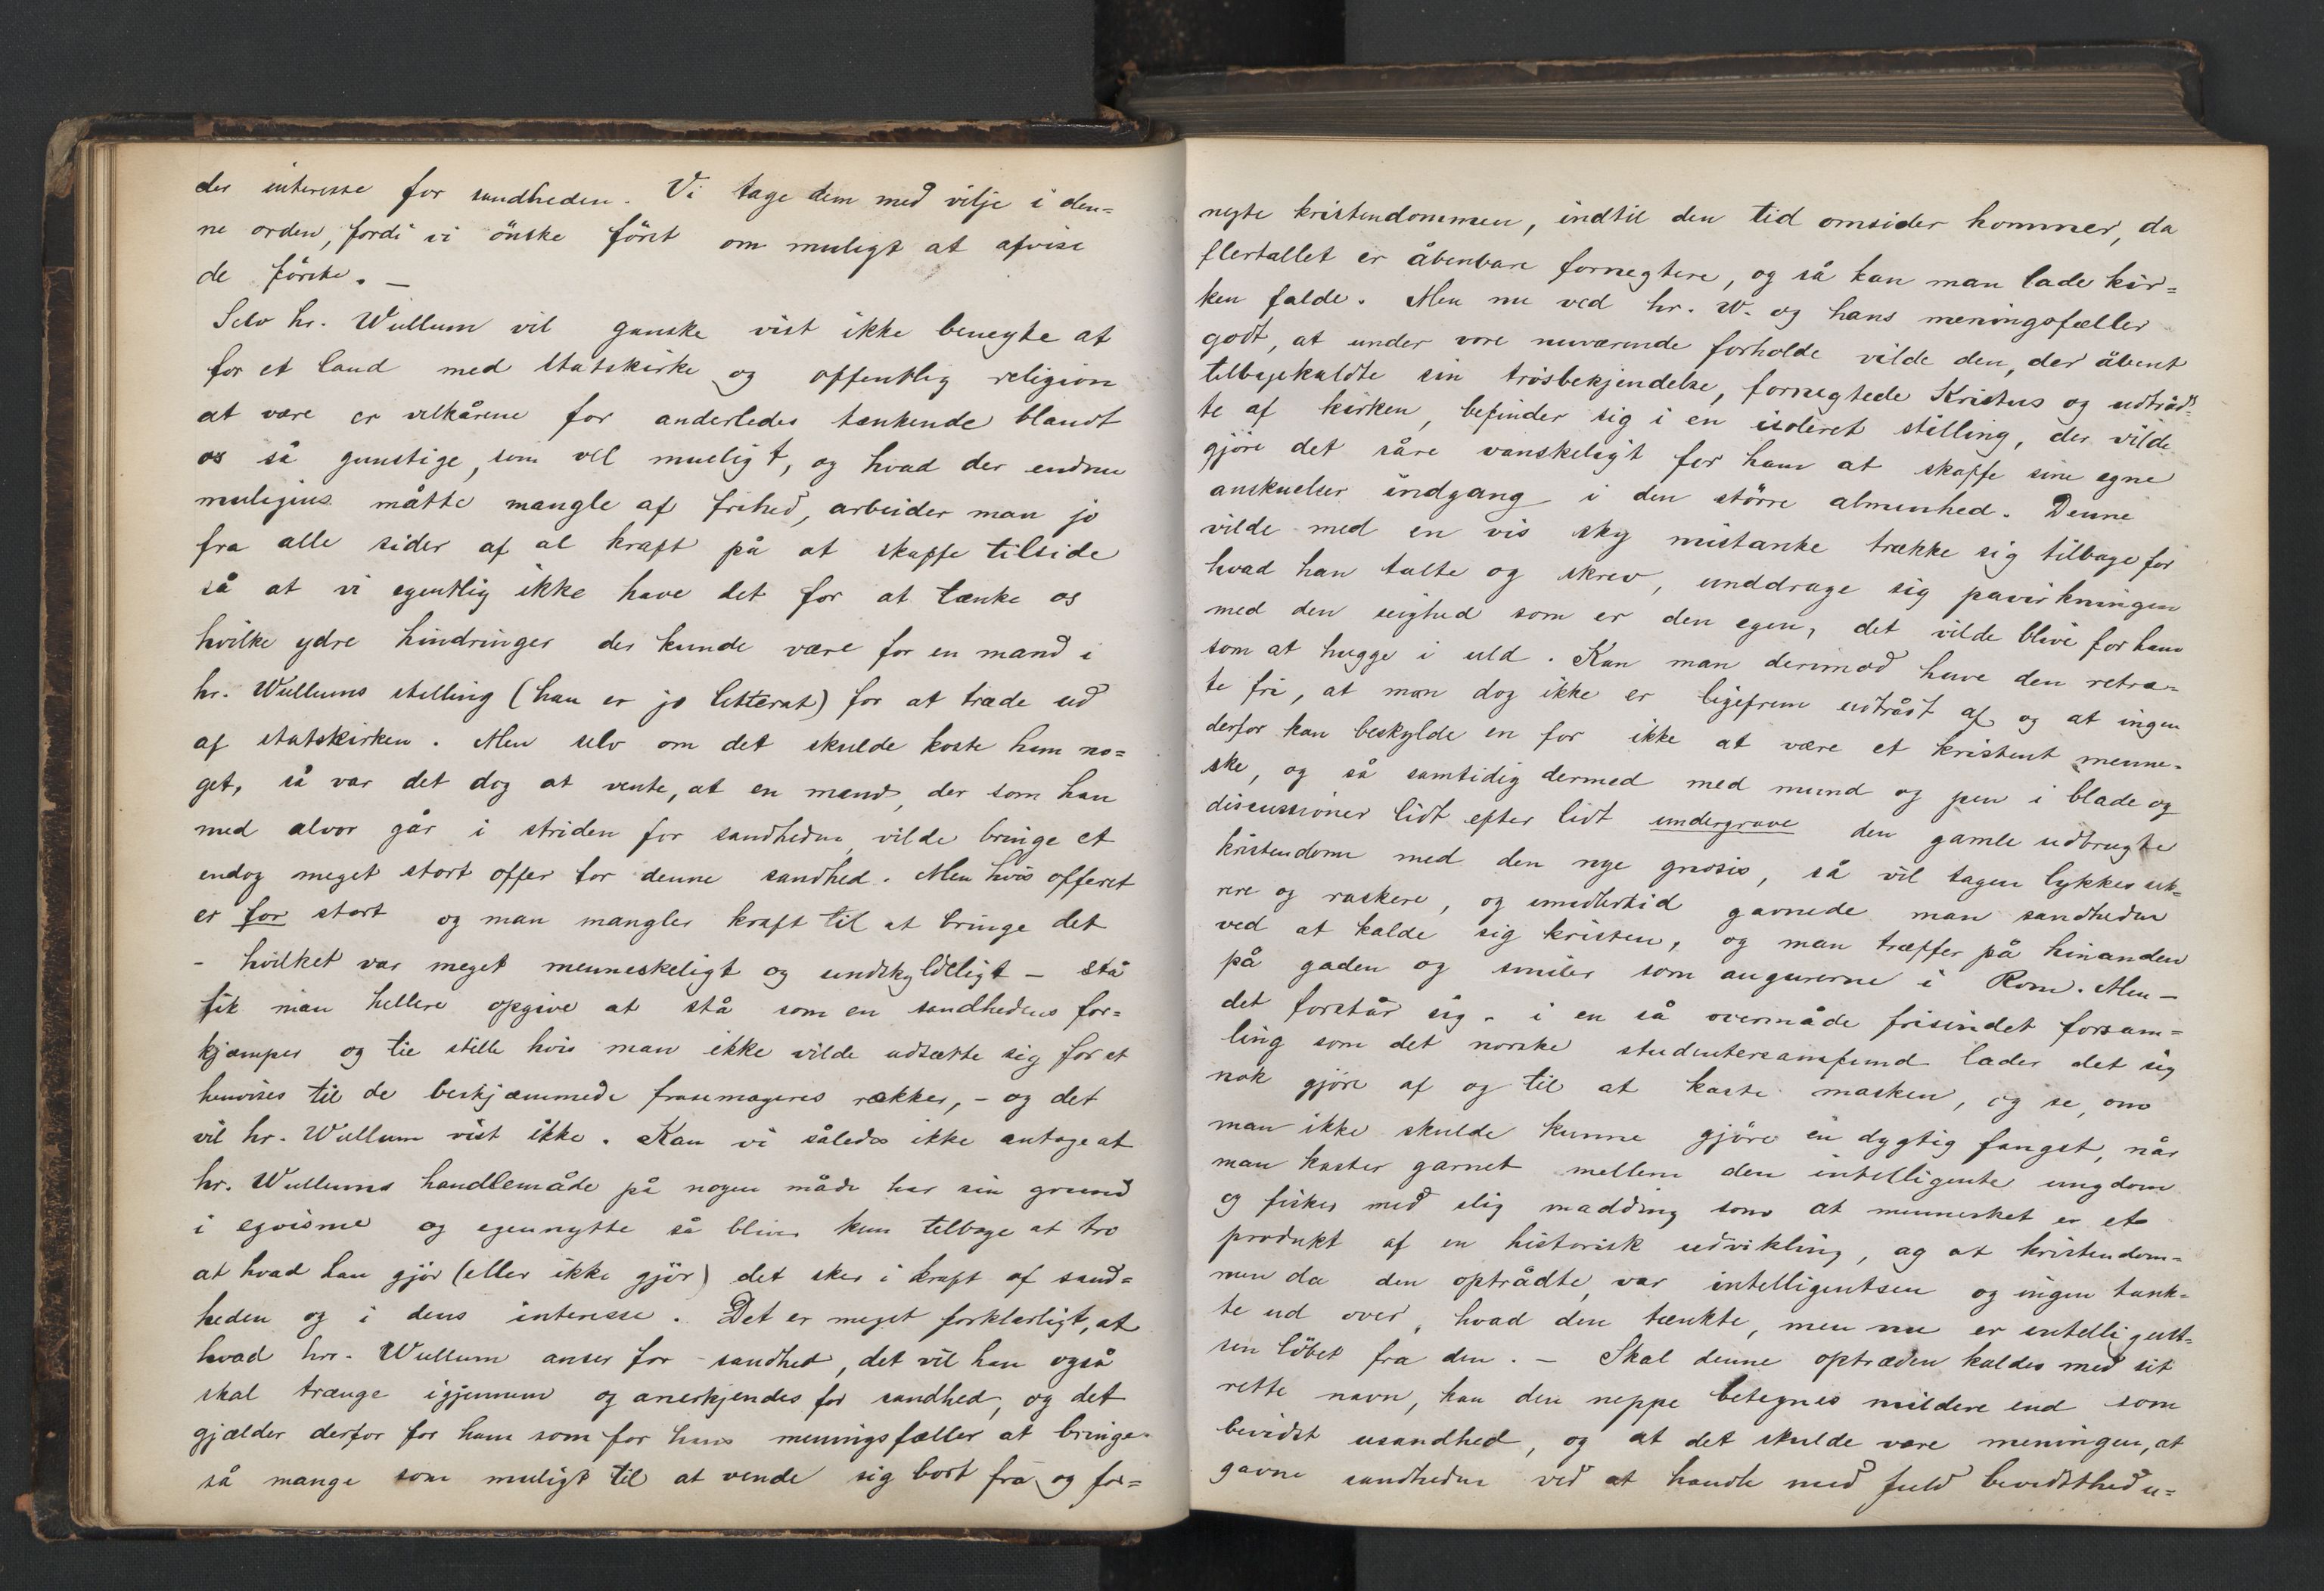 des interesse for sandheden. Vi tage dem med vilje i den=
ne orden, fordi vi önske först om muligt at afvise
de förste. —
Selv hr. Wullum vil ganske vist ikke benegte at
for et land med statskirke og offentlig religion
at være er vilkårene for anderledes tænkende blandt
os så gunstige, som vel mueligt, og hvad der endnu
muligens måtte mangle af frihed, arbeider man jo
fra alle sider af al kraft på at skaffe tilside
så at vi egentlig ikke have det for at tænke os
hvilke ydre hindringer der kunde være for en mand i
hr. Wullums stilling (han er jo litterat) for at træde ud
af statskirken. Men selv om det skulde koste ham no=
get, så var det dog at vente, at en mand, der som han
med alvor går i striden for sandheden, vilde bringe et
endog meget stort offer for denne sandhed. Men hvis offeret
er for stort og man mangler kraft til at bringe det
- hvilket var meget menneskeligt og undskyldeligt — så
fik man hellere opgive at stå som en sandhedens for=
kjæmper og tie stille hvis man ikke vilde udsætte sig for et
henvises til de beskjæmmede frasemageres rækker, - og det
vil hr. Wullum vist ikke. Kan vi således ikke antage at
hr. Wullums handlemåde på nogen måde har sin grund
i egoisme og egennytte så bliver kun tilbage at tro
at hvad han gjör (eller ikke gjör) det sker i kraft af sand=
heden og i dens interesse. Det er meget forklarligt, at
hvad hrr. Wullum anser for sandhed, det vil han også
skal trænge igjennem og anerkjendes for sandhed, og det
gjælder derfor for ham som for hans meningsfæller at bringe
så mange som muligt til at vende sig bort fra og for=
negte kristendommen, indtil den tid omsider kommer, da
flertallet er åbenbare fornegtere, og så kan man lade kir=
ken falde. Men nu ved hr. W. og hans meningsfæller
godt, at under vore nuværende forholde vilde den, der åbent
tilbagekaldte sin trosbekjendelse, fornegtede Kristus og udtråd=
te af kirken, befinder sig i en isoleret stilling, der vilde
gjöre det såre vanskeligt for ham at skaffe sine egne
anskuelser indgang i den större almenhed. Denne
vilde med en vis sky mistanke trække sig tilbage for
hvad han talte og skrev, unddrage sig pavirkningen
med den seighed som er den egen, det vilde blive for ham
som at hugge i uld. Kan man derimod have den retræ-
te fri, at man dog ikke er ligefrem udtrådt af og at ingen
derfor kan beskylde en for ikke at være et kristent menne-
ske, og så samtidig dermed med mund og pen i blade og
discussioner lidt efter lidt undergrave den gamle udbrugte
kristendom med den nye gnosis, så vil sagen lykkes sik-
rere og raskere, og imidlertid gavnede man sandheden
ved at kalde sig kristen, og man træffer på hinanden
på gaden og smiler som augurerne i Rom. Men —
det forstår sig - i en så overmåde frisindet forsam=
ling som det norske studentersamfund lader det sig
nok gjöre af og til at kaste masken, og se, om
man ikke skulde kunne gjöre en dygtig fangst, når
man kaster garnet mellem den intelligente ungdom
og fisker med slig madding som at mennesket er et
produkt af en historisk udvikling, og at kristendom=
men da den optrådte, var intelligentsen og ingen tænk=
te ud over, hvad den tænkte, men nu er intelligent=
sen löbet fra den. — Skal denne optræden kaldes med sit
rette navn, kan den neppe betegnes mildere end som
bevidst usandhed, og at det skulde være meningen, at
gavne sandheden ved at handle med fuld bevidsthed u=